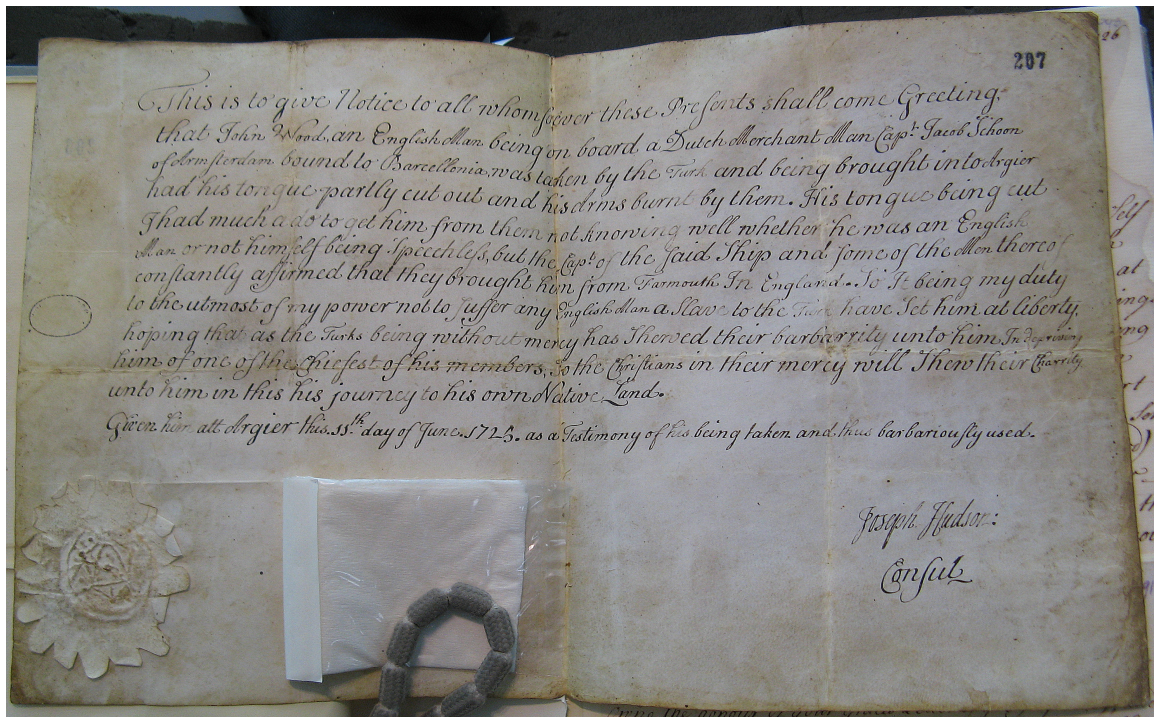 207
26
This is to give Notice to all whomsoever these Presents shall come Greeting.
that John Wood, an English Man being on board a Dutch Merchant Man Capt. Jacob Schoon
of Amsterdam bound to Barcellonia, was taken by the Turk and being brought into Argier
had his tongue partly cut out and his Arms burnt by them. His tongue being cut
I had much a do to get him from them not knowing well whether he was an English
Man or not himself being Speechless, but the Capt. of the said Ship and some of the Men thereof
constantly affirmed that they brought him from Yarmouth In England.. So It being my duty
to the utmost of my power not to suffer any English Man a Slave to the Turk have set him at liberty,
hoping that as the Turks being without mercy has Shewed their barbarrity unto him In depriving
him of one of the Chiefest of his members, So the Christians in their mercy will Shew their Charrity
unto him in this his journey to his own Native Land.
Given him att Argier this 11th day of June 1725. as a Testimony of his being taken and thus barbariously used.
Joseph Hudson:
Consul